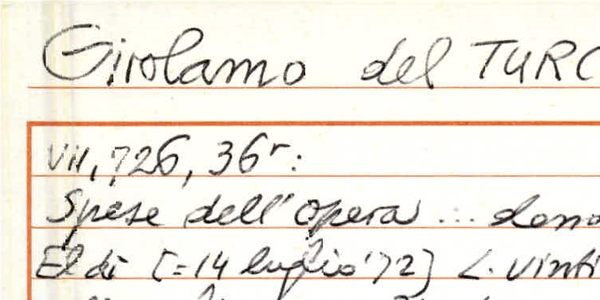 Girolamo del TURC
VII, 726, 36r:
Spese dell'opera ... dono
El dì [=14 luglio '72] L. vinti